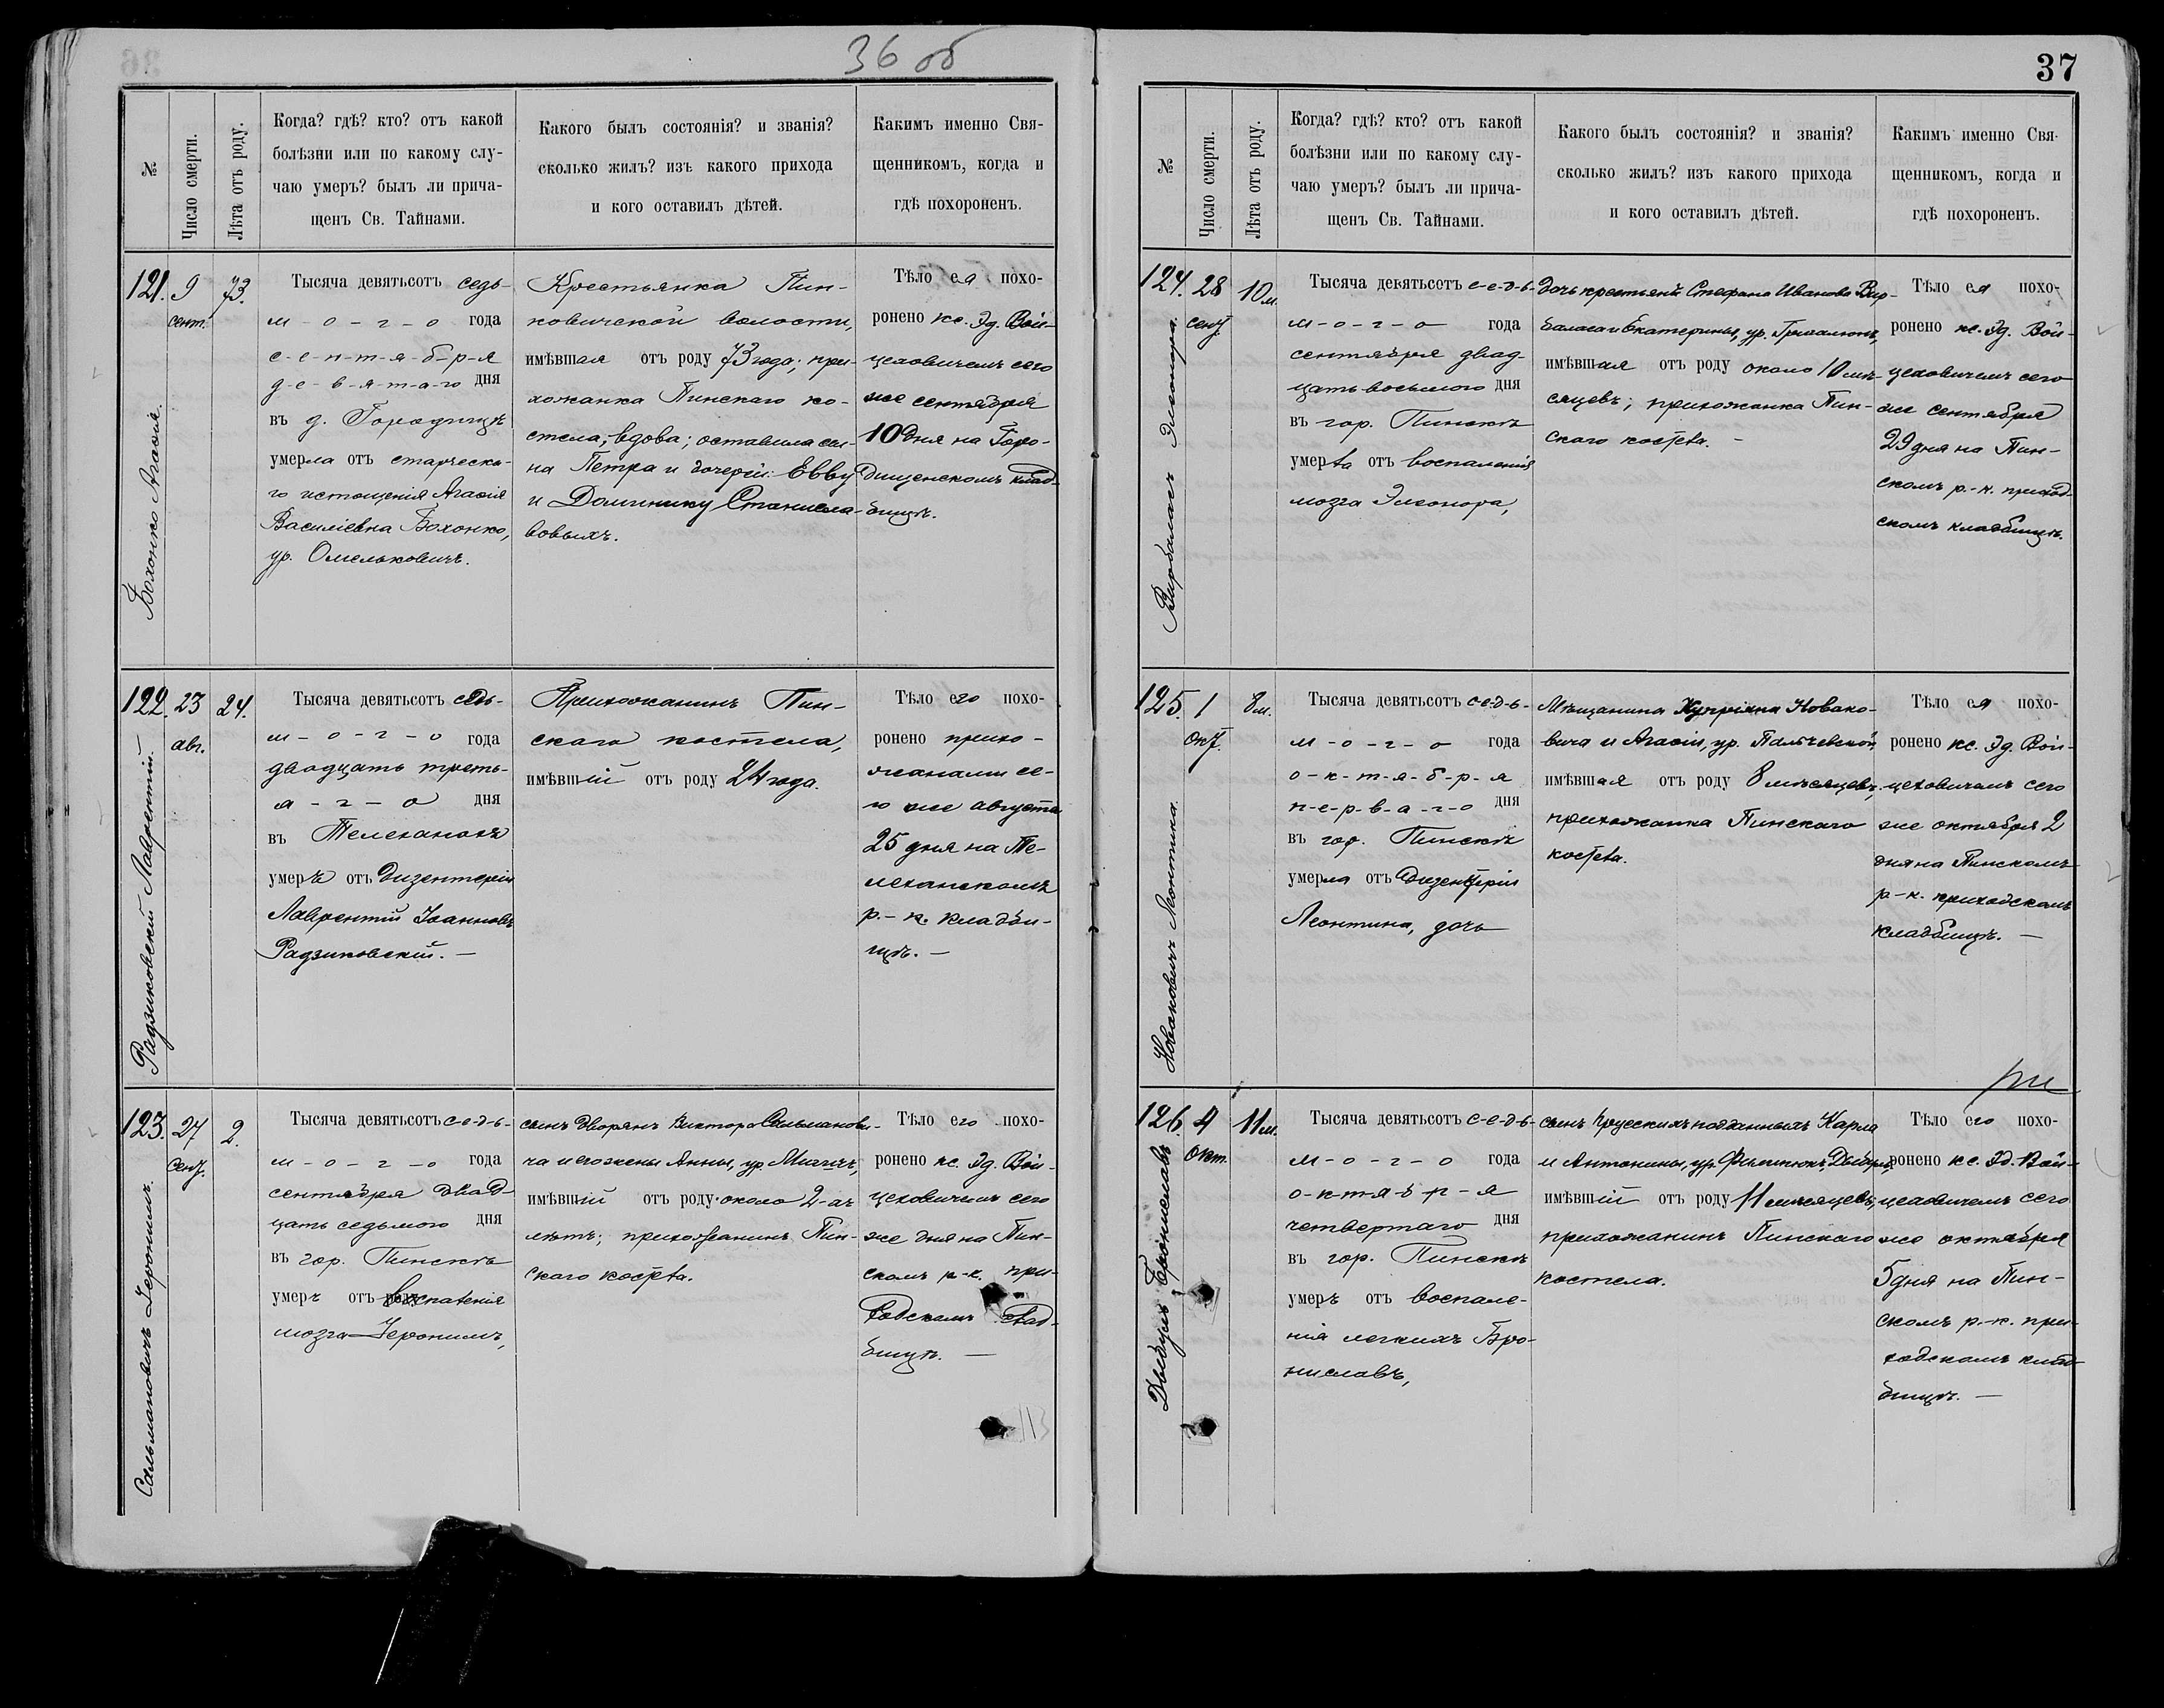 36 об
№
Число смерти.
Лѣта отъ роду.
Когда? гдѣ? кто? отъ какой
болѣзни или по какому слу-
чаю умеръ? былъ ли прича-
щенъ Св. Тайнами.
Какого былъ состоянія? и званія?
сколько жилъ? изъ какого прихода
и кого оставилъ дѣтей.
Какимъ именно Свя-
щенникомъ, когда и
гдѣ похороненъ.
121.
Бохонко Агаѳія.
9
сент.
73.
Тысяча девятьсотъ седь-
м-о-г-о года
с-е-н-т-я-б-р-я
д-е-в-я-т-а-го дня
въ д. Городищѣ
умерла отъ старческа-
го истощенія Агаѳія
Василіевна Бохонко,
ур. Омельковичъ.
Крестьянка Пин-
ковичской волости,
имѣвшая отъ роду 73 года; при-
хожанка Пинскаго ко-
стела, вдова; оставила сы-
на Петра и дочерей: Евву
и Доминику Станисла-
вовыхъ.
Тѣло ея похо-
ронено кс. Эд. Вой-
цеховичемъ сего
же сентября
10 дня на Горо-
дищенскомъ клад-
бищѣ.
122.
Радзиковскій Лаврентій.
23
авг.
24.
Тысяча девятьсотъ седь-
м-о-г-о года
двадцать треть-
я-г-о дня
въ Телеханахъ
умеръ отъ дизентеріи
Лаврентій Іоанновъ
Радзиковскій. —
Прихожанинъ Пин-
скаго костела,
имѣвшій отъ роду 24 года.
Тѣло его похо-
ронено прихо-
жанами се-
го же августа
25 дня на Те-
леханскомъ
р.-к. кладби-
щѣ. —
123.
Сальмановичъ Іеронимъ.
27
сент.
2.
Тысяча девятьсотъ с-е-д-ь-
м-о-г-о года
сентября двад-
цать седьмого дня
въ гор. Пинскѣ
умеръ отъ воспаленія
мозга Іеронимъ,
сынъ дворянъ Виктора Сальманови-
ча и его жены Анны, ур.
имѣвшій отъ роду около 2-хъ
лѣтъ; прихожанинъ Пин-
скаго костела.
Тѣло его похо-
ронено кс. Эд. Вой-
цеховичемъ сего
же дня на Пин-
скомъ р.-к. при-
ходскомъ клад-
бищѣ. —
37
№
Число смерти.
Лѣта отъ роду.
Когда? гдѣ? кто? отъ какой
болѣзни или по какому слу-
чаю умеръ? былъ ли прича-
щенъ Св. Тайнами.
Какого былъ состоянія? и званія?
сколько жилъ? изъ какого прихода
и кого оставилъ дѣтей.
Какимъ именно Свя-
щенникомъ, когда и
гдѣ похороненъ.
124.
Вирбаласъ Элеонора.
28
сент.
10 м.
Тысяча девятьсотъ с-е-д-ь-
м-о-г-о года
сентября двад-
цать восьмого дня
въ гор. Пинскѣ
умерла отъ воспаленія
мозга Элеонора,
дочь крестьянъ Стефана Иванова Вир-
баласа и Екатерины, ур.
имѣвшая отъ роду около 10 мѣ-
сяцевъ; прихожанка Пин-
скаго костела. -
Тѣло ея похо-
ронено кс. Эд. Вой-
цеховичемъ сего
же сентября
29 дня на Пин-
скомъ р.-к. приход-
скомъ кладбищѣ.
125.
Новаковичъ Леонтина.
1
окт.
8 м.
Тысяча девятьсотъ с-е-д-ь-
м-о-г-о года
о-к-т-я-б-р-я
п-е-р-в-а-г-о дня
въ гор. Пинскѣ
умерла отъ дизентеріи
Леонтина, дочь
Мѣщанина Купріяна Новако-
вича и Агаѳіи, ур. Пальчевской
имѣвшая отъ роду 8 мѣсяцевъ,
прихожанка Пинскаго
костела.
Тѣло ея похо-
ронено кс. Эд. Вой-
цеховичемъ сего
же октября 2
дня на Пинскомъ
р-к. приходскомъ
кладбищѣ. —
126.
Дыбусъ Брониславъ
4
окт.
11 м.
Тысяча девятьсотъ с-е-д-ь-
м-о-г-о года
о-к-т-я-б-р-я
четвертаго дня
въ гор. Пинскѣ
умеръ отъ воспале-
нія легкихъ Бро-
ниславъ,
сынъ прусскихъ подданныхъ Карла
и Антонины, ур.
имѣвшій отъ роду 11 мѣсяцевъ,
прихожанинъ Пинскаго
костела.
Тѣло его похо-
ронено кс. Эд. Вой-
цеховичемъ сего
же октября
5 дня на Пин-
скомъ р.-к. при-
ходскомъ клад-
бищѣ. —